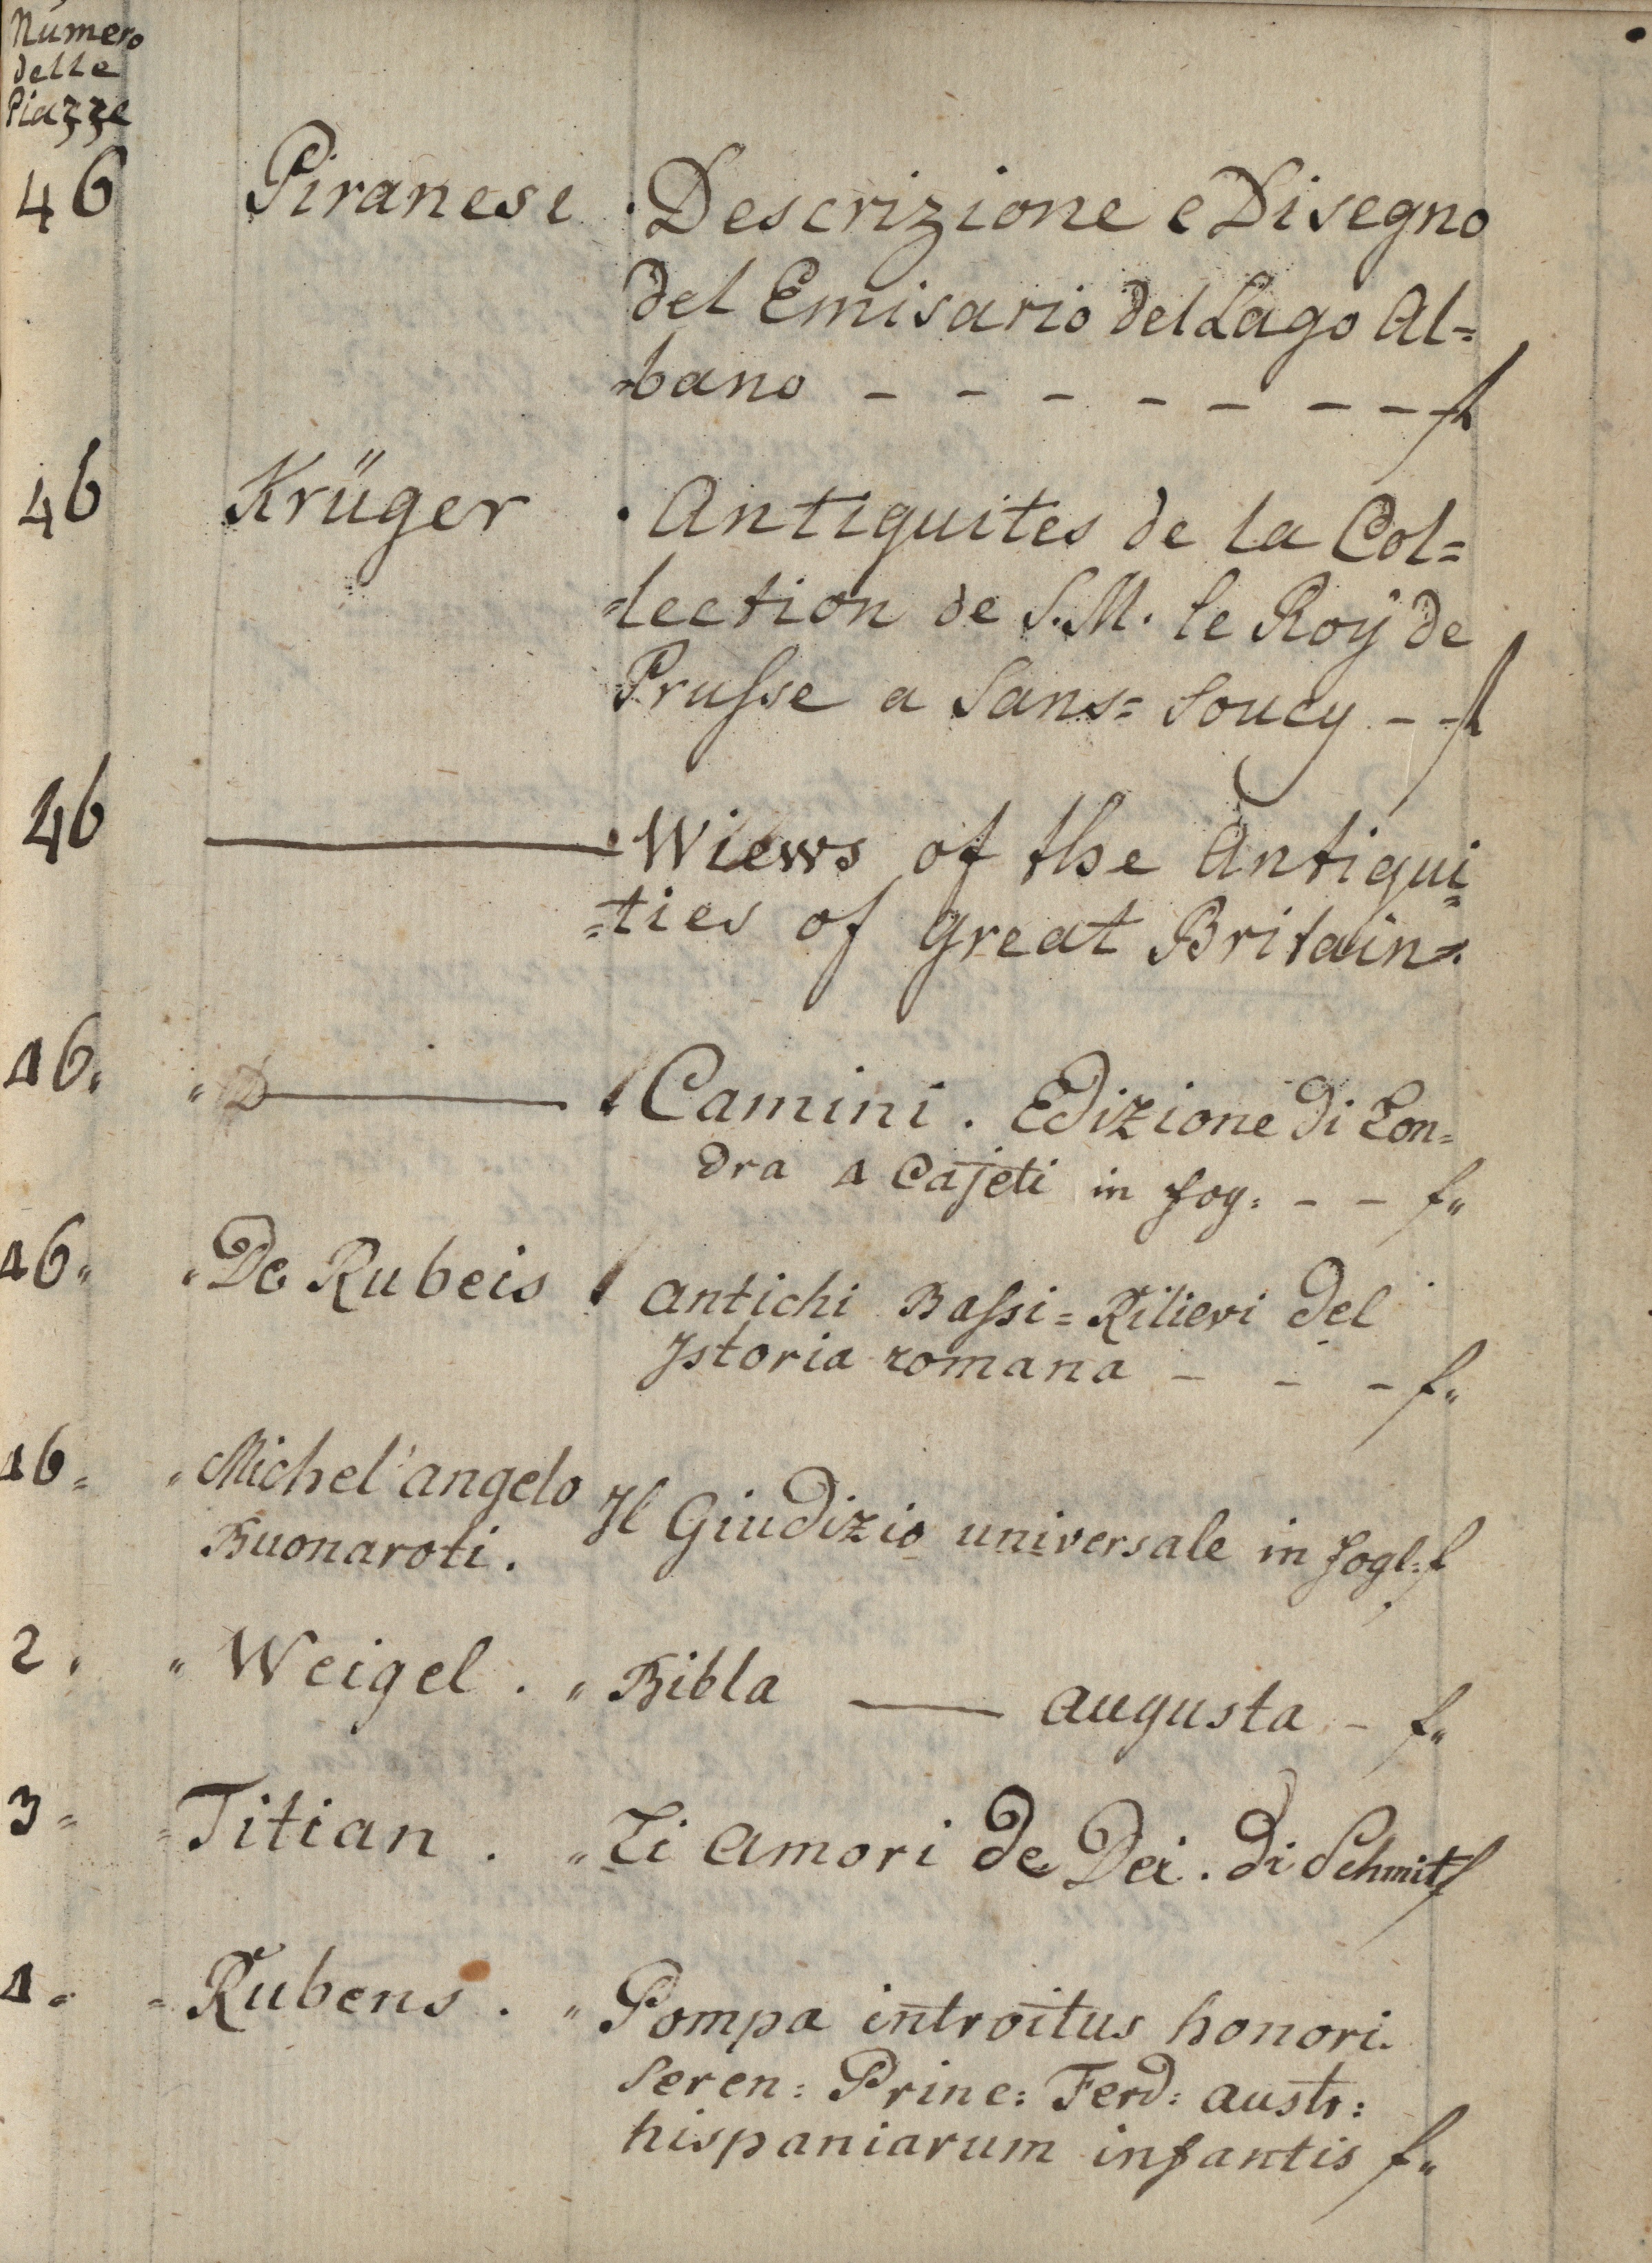 Numero
delle
Piazze
46 Piranese . Descrizione e Disegno
del Emisario del Lago Al=
=bano - - - - - - - - f
46 Krüger . Antiquites de la Col=
=lection de S.M. le Roÿ de
Prusse a Sans= Soucy - - f
46 ——— . Wiews of the Antiqui=
=ties of great Britain=.
46„ „ ——— Camini . Edizione di Lon=
dra 4 Cajeti in fog: - - f„
46„ „ De Rubeis Antichi Bassi=Rilievi del
Istoria romana - - - f„
46= „ Michel'angelo Il Giudizio universale in fogl: f
Buonaroti .
2 „ „ Weigel . „ Bibla —— augusta - f„
3 = = Titian . „ Li Amori de Dei . di Schmit f
4 = = Rubens . „ Pompa introitus honori.
Seren: Princ: Ferd: austr:
hispaniarum infantis f„